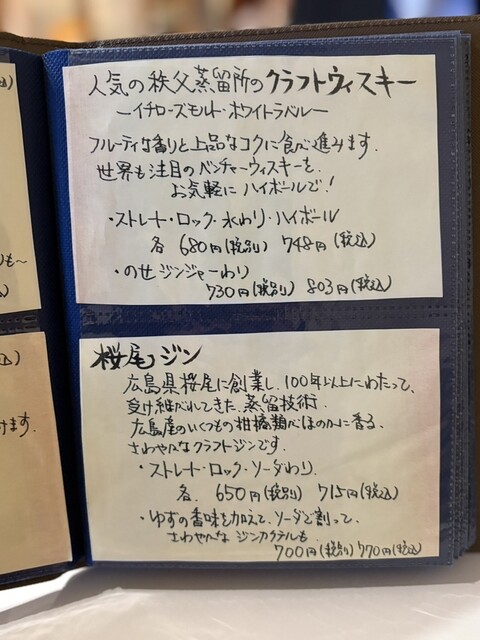 人気の秩父蒸留所のクラフトウィスキー
―イチローズモルト・ホワイトラベル―
フルーティな香りと上品なコクに食べ進みます。
世界も注目のベンチャーウィスキーを、
お気軽にハイボールで！
・ストレート・ロック・水わり・ハイボール
各 680円(税別) 748円(税込)
・のせジンジャーわり
730円(税別) 803円(税込)
桜尾ジン
広島県桜尾に創業し、100年以上にわたって、
受け継がれてきた蒸留技術。
広島産のいくつもの柑橘類がほのかに香る、
さわやかなクラフトジンです。
・ストレート・ロック・ソーダわり。
各. 650円(税別) 715円(税込)
・ゆずの香味を加えて、ソーダで割って、
さわやかなジンカクテルも。
700円(税別) 770円(税込)
も〜
けます.